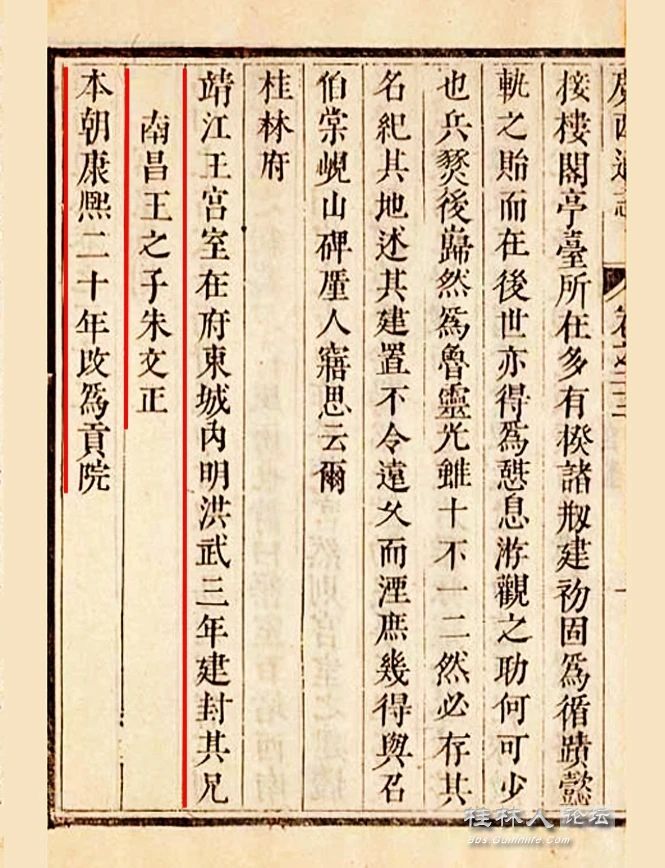 廣西通志
接樓閣亭臺所在多有揆諸剏建初固爲循蹟懿
軌之貽而在後世亦得爲憇息游觀之助何可少
也兵燹後巋然爲魯靈光雖十不一二然必存其
名紀其地述其建置不令遠久而湮庶幾得與召
伯棠峴山碑廑人寤思云爾
桂林府
靖江王宫室在府東城內明洪武三年建封其兄
南昌王之子朱文正
本朝康熙二十年改爲貢院
桂林人论坛
bbs.Guilinlife.com